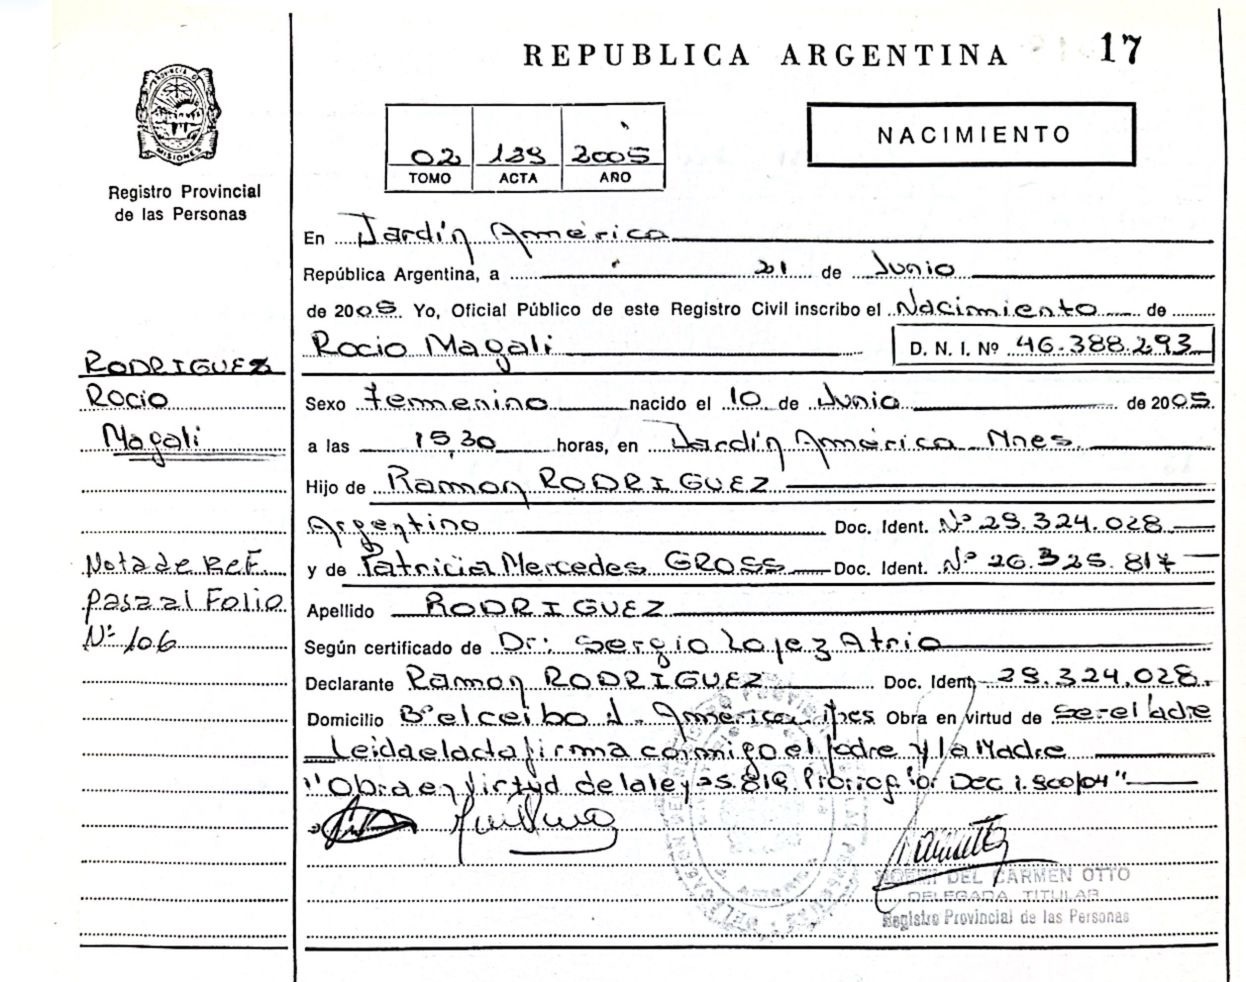 REPUBLICA ARGENTINA 17
PROVINCIA DE MISIONES
Registro Provincial de las Personas
02 139 2005
TOMO ACTA AÑO
NACIMIENTO
En Jardín América
República Argentina, a 21 de Junio
de 2005. Yo, Oficial Público de este Registro Civil inscribo el Nacimiento de
Rocio Magali D. N. I. Nº 46.388.293
RODRIGUEZ
Rocio
Magali
Nota de Ref.
pasa al Folio
Nº 106
Sexo Femenino nacido el 10 de Junio de 2005.
a las 15,30 horas, en Jardín América Mnes.
Hijo de Ramon RODRIGUEZ
Argentino Doc. Ident. Nº 29.324.028
y de Patricia Mercedes GROSS Doc. Ident. Nº 26.325.817
Apellido RODRIGUEZ
Según certificado de Dr: Sergio Lopez Atrio
Declarante Ramon RODRIGUEZ Doc. Ident. 29.324.028.
Domicilio Bº el ceibo J. América Obra en virtud de ser el Padre
Leida el acta firma conmigo el Padre y la Madre
"Obra en Virtud de la ley 25.819 Dec 1.800/04"
DEL CARMEN OTTO
DELEGADA TITULAR
Registro Provincial de las Personas